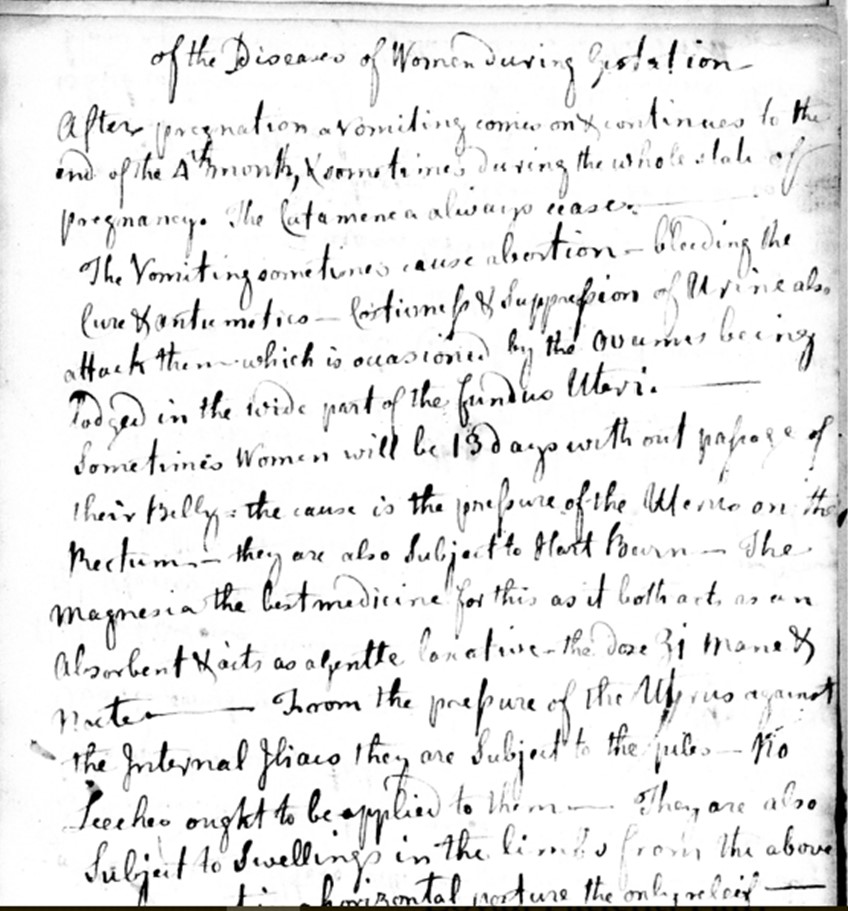 of the Diseases of Women during Gestation
After pregnation a vomiting comes on & continues to the
end of the 4th month, & sometimes during the whole state of
pregnancy. The Catamenea always cease.
The Vomiting sometimes cause abortion – bleeding the
Cure & antiemetics – Costiveness & Suppression of Urine also
attack them which is occasioned by the Ovumes being
lodged in the wide part of the fundus Uteri.
Sometimes Women will be 13 days without passage of
their Belly: the cause is the pressure of the Uterus on the
Rectum – they are also Subject to Hart Burn – The
Magnesia the best medicine for this as it both acts as an
Absorbent & acts as a gentle laxative – the dose ʒi Mane &
Nocte — From the pressure of the Uterus against
the Internal Iliacs they are Subject to the piles – No
Leeches ought to be applied to them — They are also
Subject to Swellings in the limbs from the above
a horizontal posture the only releif —